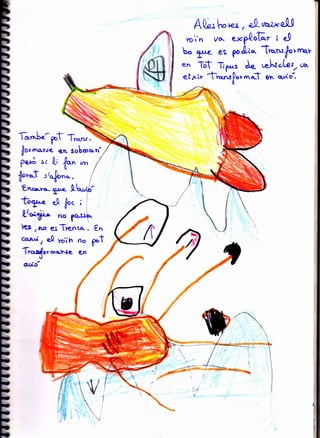 Aleshores, el vaixell
roïn va explotar i el
bo que es podia Transformar
en Tot Tipus de vehicles, va
eixir Transformat en avió.
També pot Trans-
formarse en submarí
però si li fan un
forat s'afona.
Encara que l'avió
toque el foc i
l'aigua no passa
res, no es Trenca. En
canvi, el roïn no pot
Transformar-se en
avió